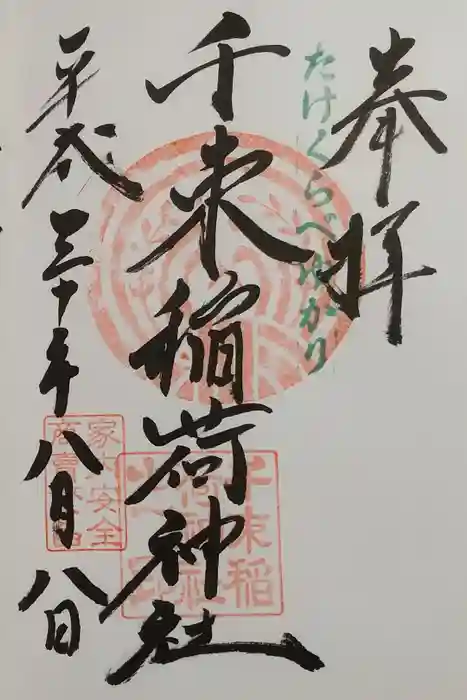 奉拝
たけくらべゆかり
千束稲荷神社
平成三十年八月八日
家内安全